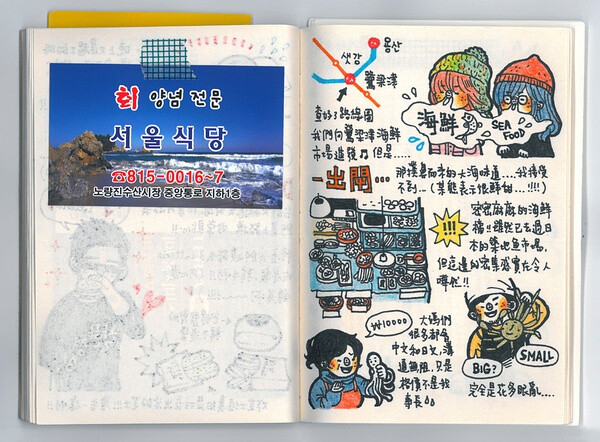 회 양념 전문
서울식당
☎815-0016~7
노량진수산시장 중앙통로 지하1층
샛강
용산
鷺梁津
查好了路線圖
我們向鷺梁津海鮮
市場進發
但是……
海鮮
SEA FOOD
一出閘…
那撲鼻而來的海味道……我待受
不到…(某熊表示很鮮甜……!!!)
!!!
密密麻麻的海鮮
檔!雖然已去過日
本的築地魚市場,
但這邊的密集感實在令人
嘩然!!
₩10000
大媽們
很多都會
中文和日文,溝
通無阻,只是
格價不是我
事長
BIG?
SMALL
完全是花多眼亂……